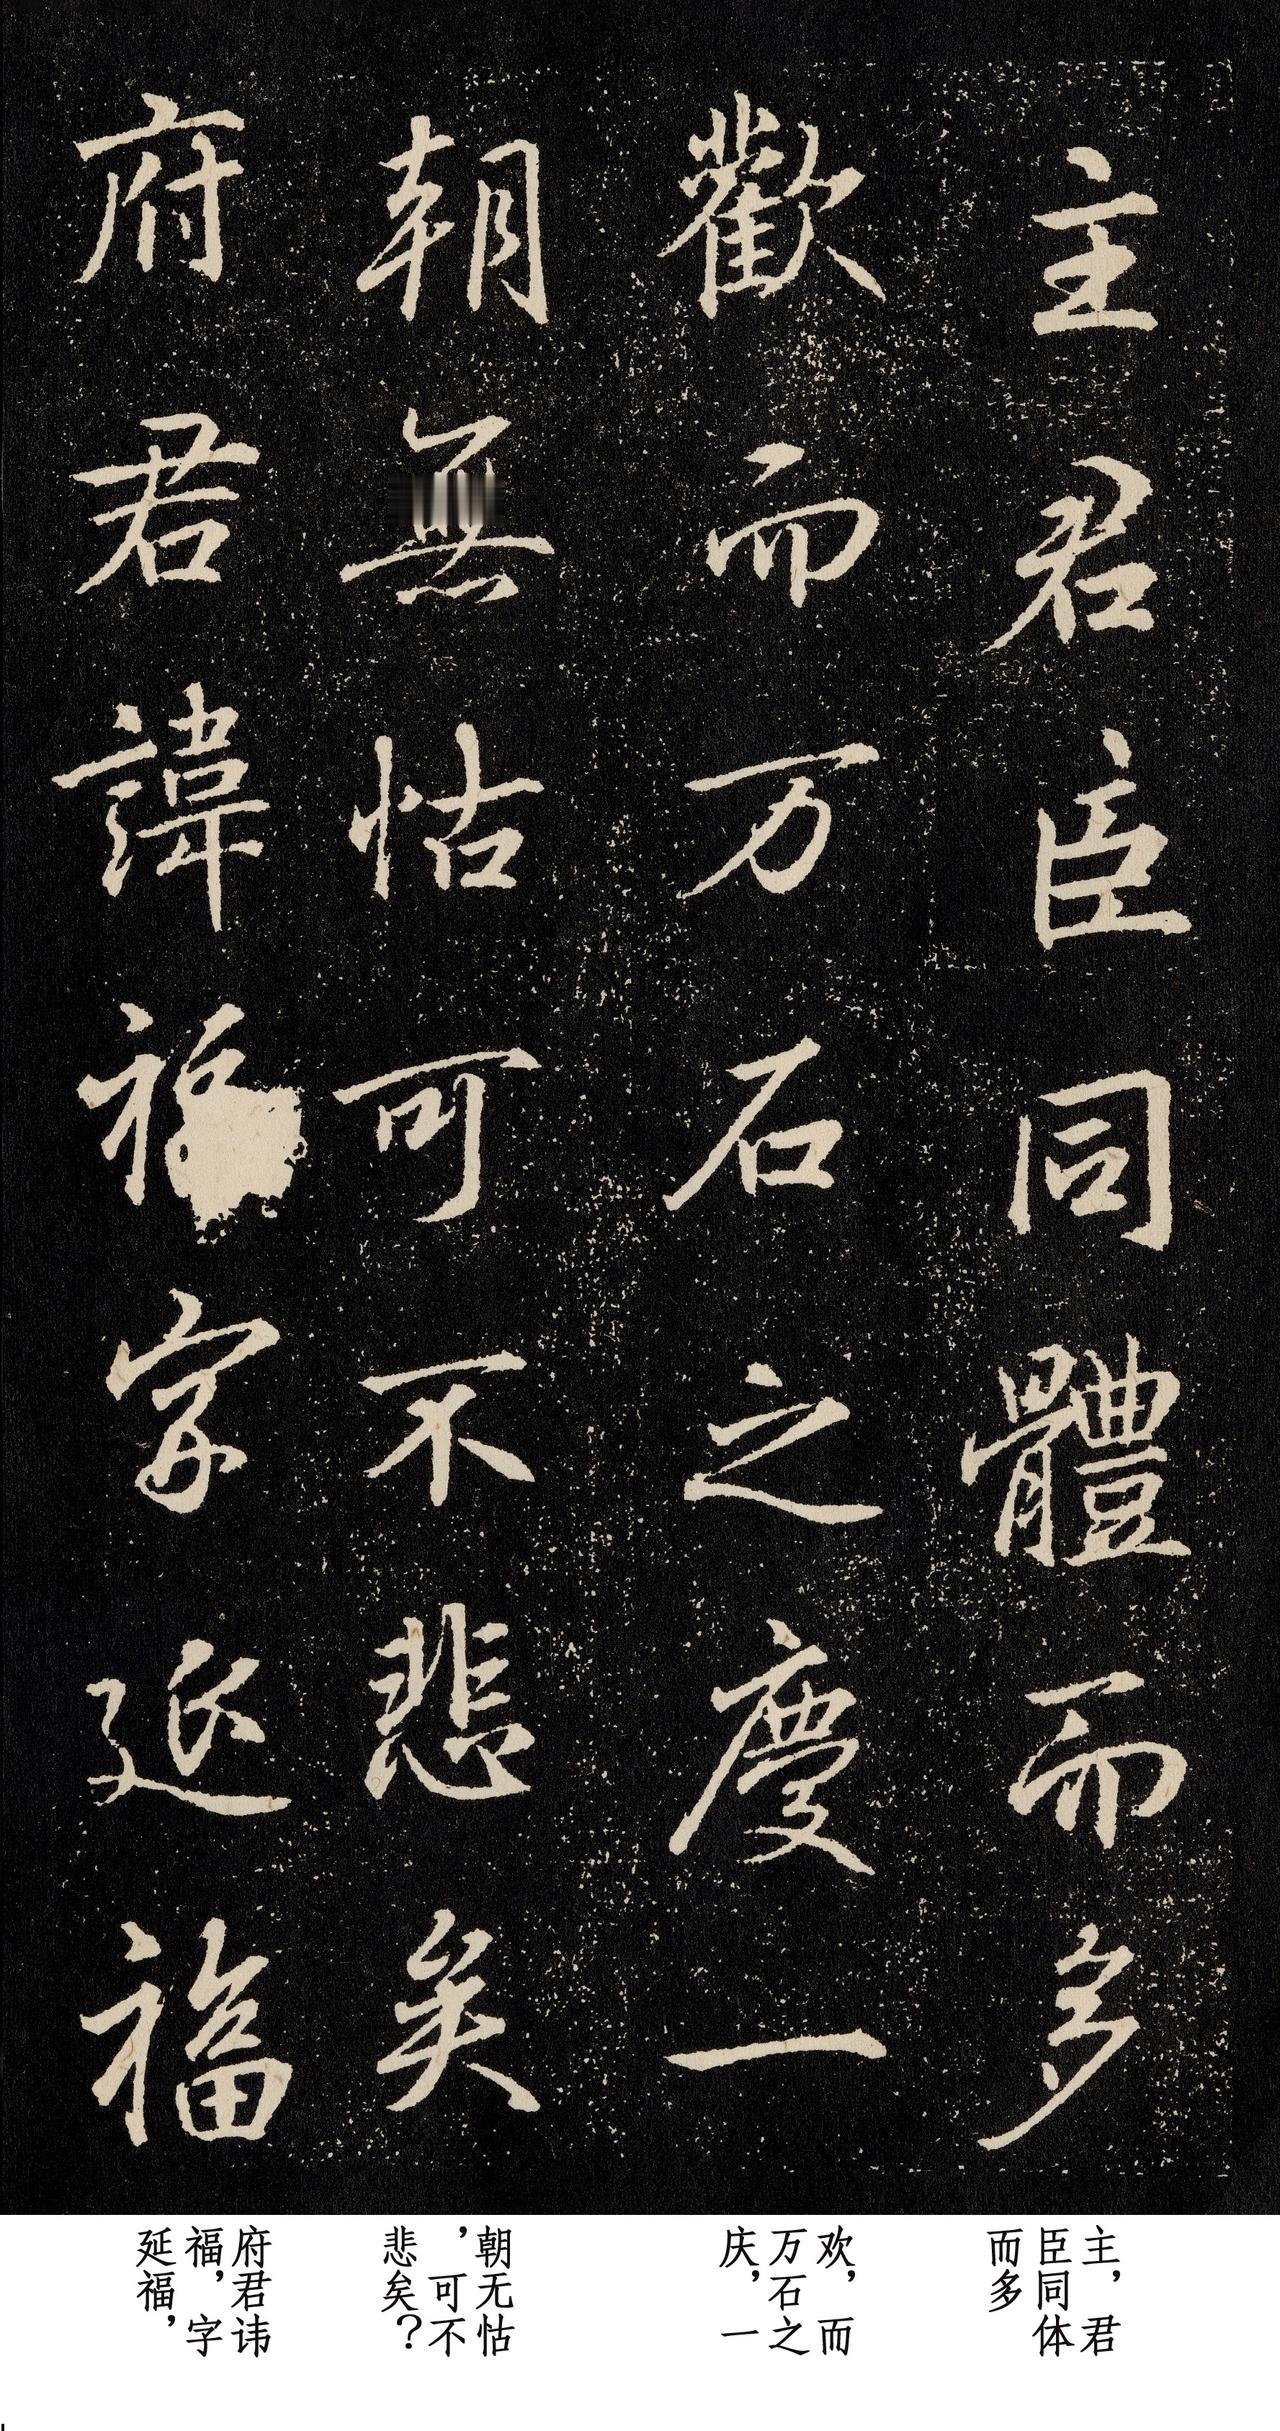 主君臣同體而多
歡而万石之慶一
朝無怙可不悲矣
府君諱字延福
主，君
臣同体
而多
欢，而
万石之
庆，一
朝无怙
，可不
悲矣？
府君讳
福，字
延福，